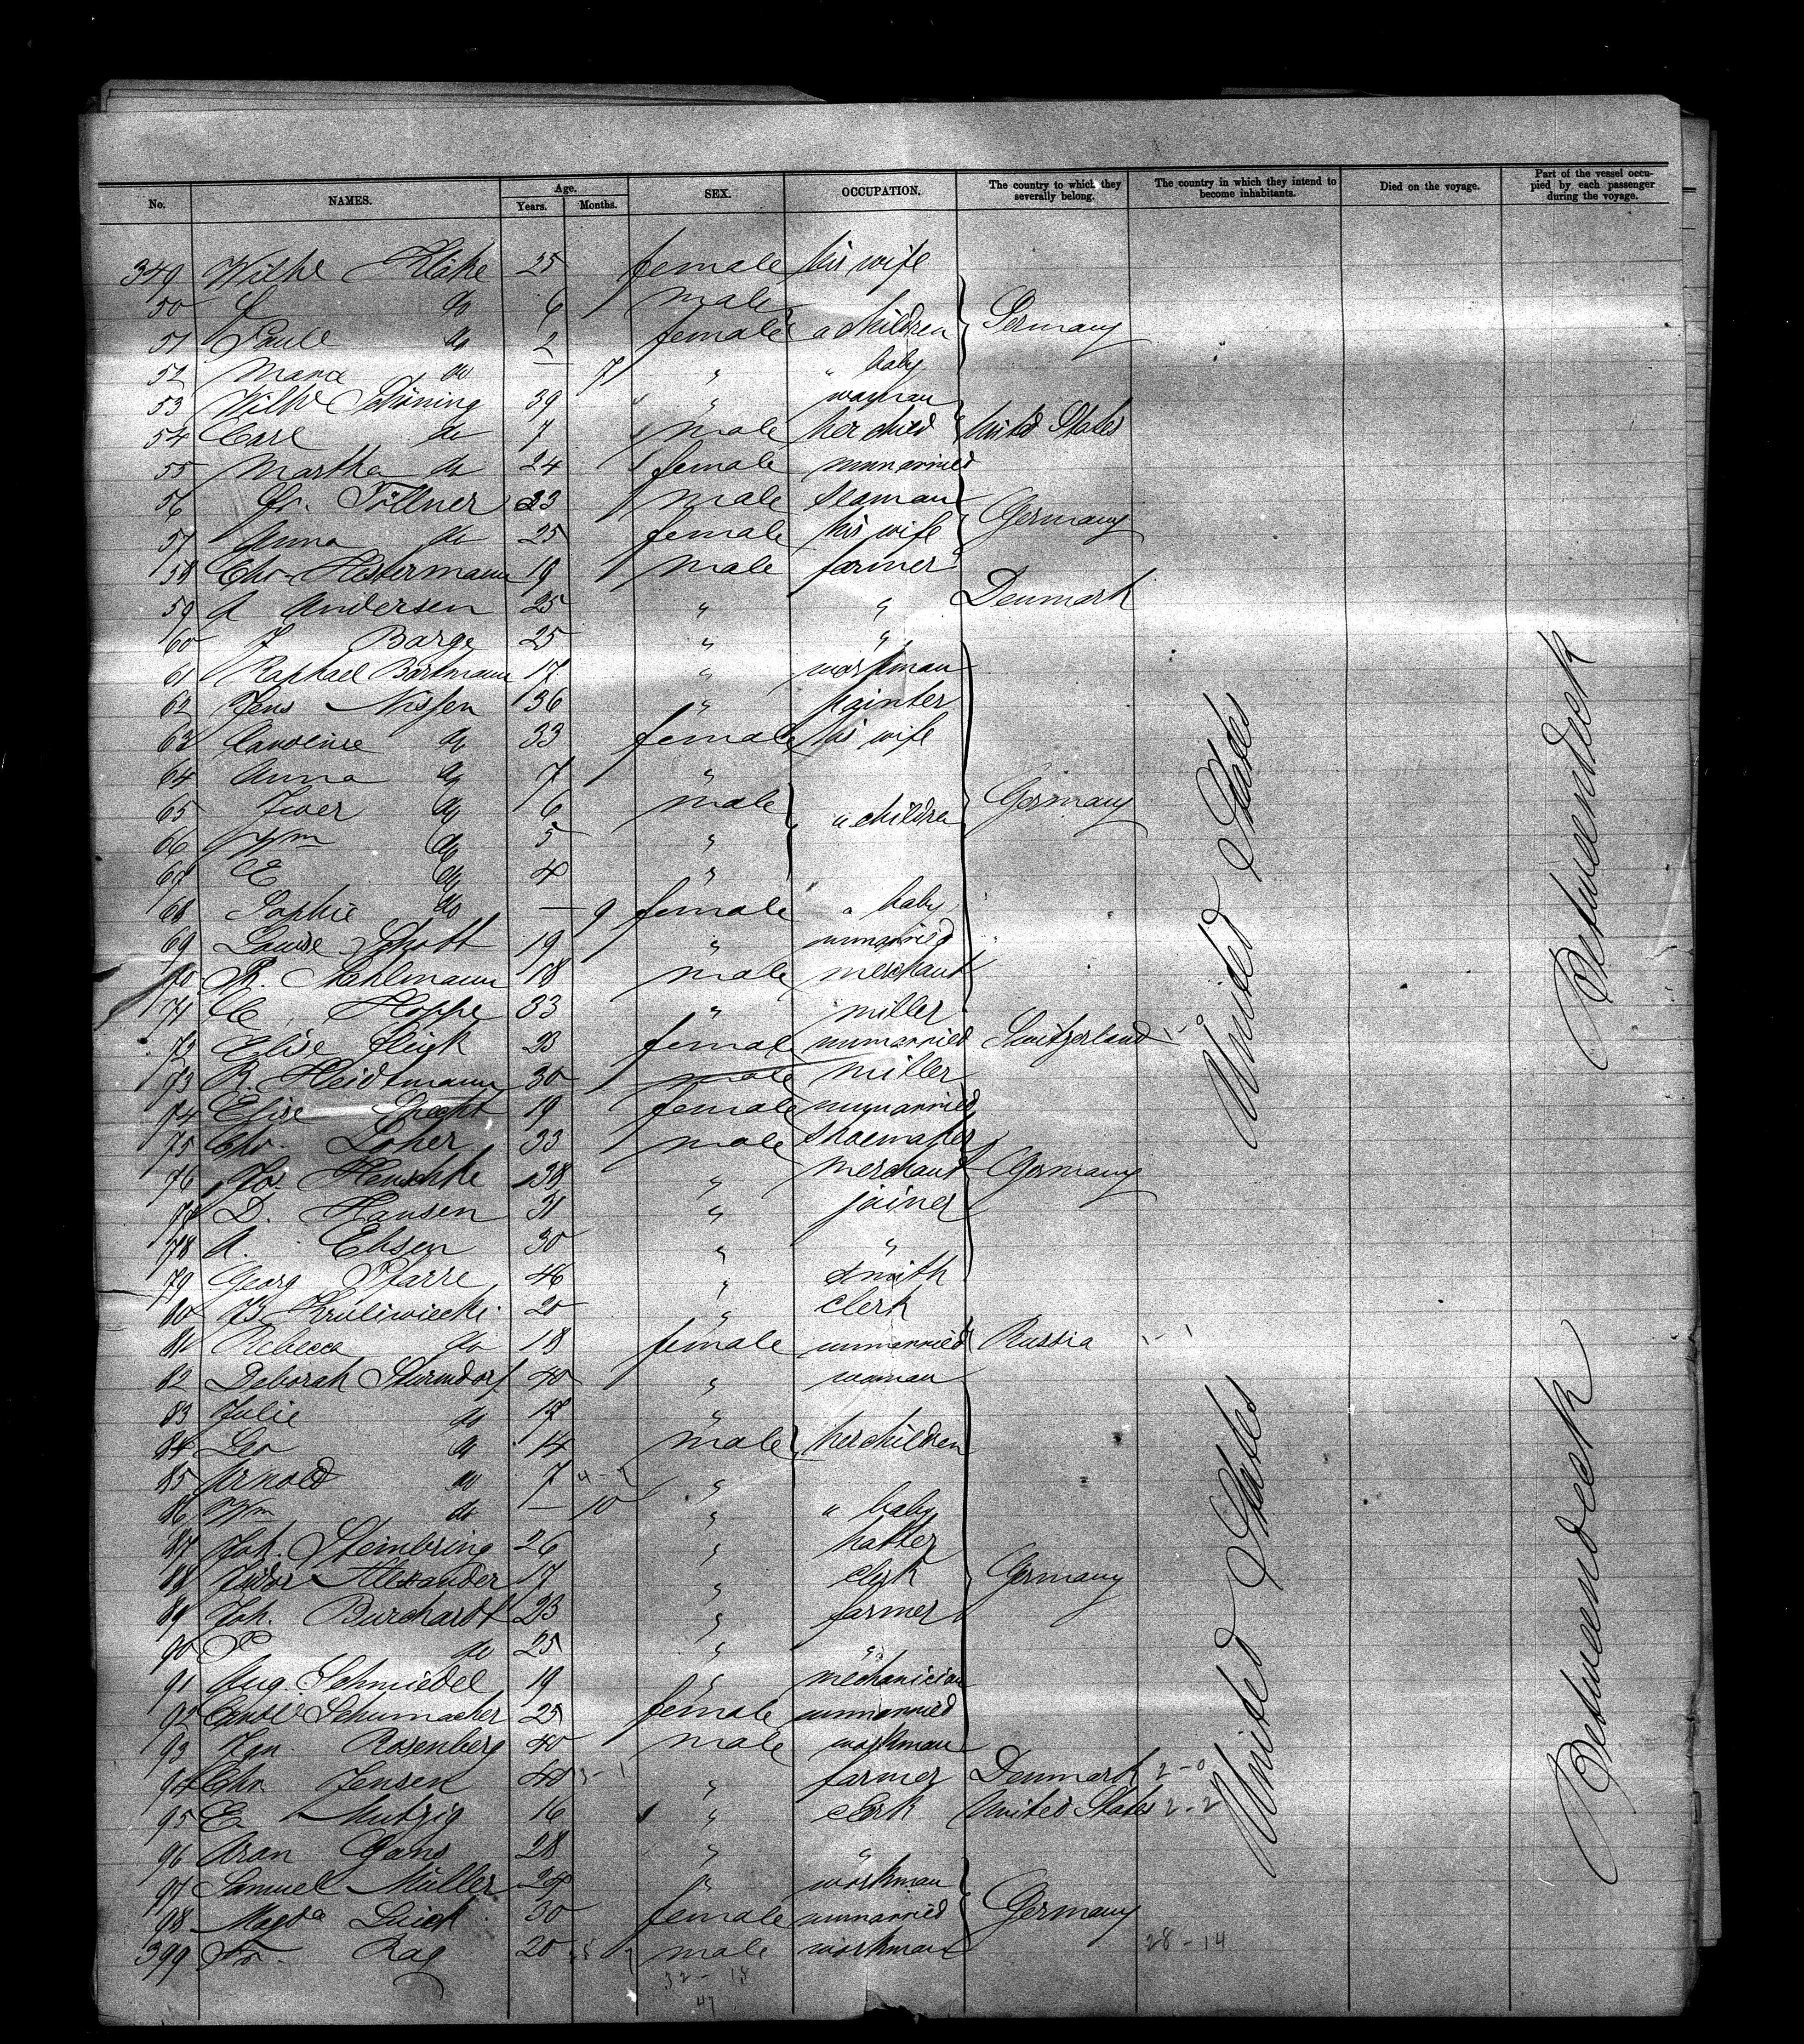 No. NAMES. Age. Years. Months. SEX. OCCUPATION. The country to which they severally belong. The country in which they intend to become inhabitants. Died on the voyage. Part of the vessel occupied by each passenger during the voyage.
349 Wilhe Kläke 25 female his wife
50 do 6 male
51 Paule do 2 female " children Germany
52 Maria do — 7 " " baby
53 Wilhe Schöning 39 " woman
54 Carl do 7 male her child United States
55 Martha do 24 female unmarried
56 Fr. Töllner 33 male seaman
57 Anna do 25 female his wife Germany
58 Chr. Hestermann 19 male farmer
59 A Andersen 25 " " Denmark
60 J Barge 25 " "
61 Raphael Bortmann 17 " workman
62 Jens Nissen 36 " painter
63 Caroline do 33 female his wife
64 Anna do 7 "
65 Iver do 6 male " children Germany
66 Wm do 5 "
67 E do 4 "
68 Sophie do — 9 female " baby
69 Louise Schott 19 " unmarried
70 R. Stahlmann 18 male merchant
71 C Hoppe 33 " miller
72 Elise 23 female unmarried Switzerland 1-0
73 R. Heidtmann 30 male miller
74 Elise Specht 19 female unmarried
75 Chr. Loher 33 male shoemaker
76 Jos. Henschke 38 " merchant Germany
77 D. Hansen 31 " joiner
78 A. Ebsen 30 " "
79 Georg Pfarre 46 " smith
80 B. Kruliwiecki 20 " clerk
81 Rebecca do 18 female unmarried Russia 1-1
82 Deborah Sturmdorf 40 " woman
83 Julie do 17 "
84 Leo do 14 male her children
85 Arnold do 7 "
86 Wm do — 10 " " baby
87 Joh. Steinbring 26 " hatter
88 Isidor Alexander 17 " clerk Germany
89 Joh. Burchardt 23 " farmer
90 P do 25 " "
91 Aug. Schmiedel 19 " mechanician
92 Schumacher 25 female unmarried
93 Ign. Rosenberg 40 male workman
94 Chr. Jensen 40 " farmer Denmark 2-0
95 E. Mutzig 16 " clerk United States 2-2
96 Aron Gans 28 " "
97 Samuel Müller 24 " workman
98 Magda Luick 30 female unmarried Germany
399 Fr. Rag 20 male workman 28-14
32-15
47
United States
United States
Betweendeck
Betweendeck